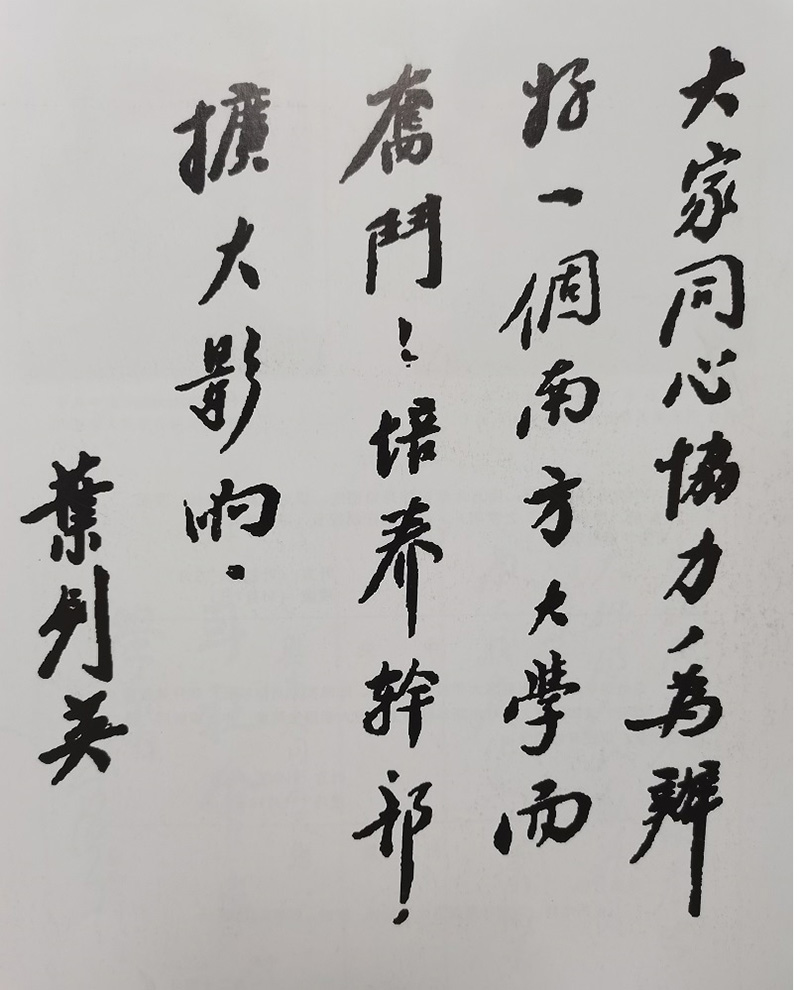 大家同心協力，為辦
好一個南方大學而
奮鬥！培养幹部！
擴大影响．
葉劍英